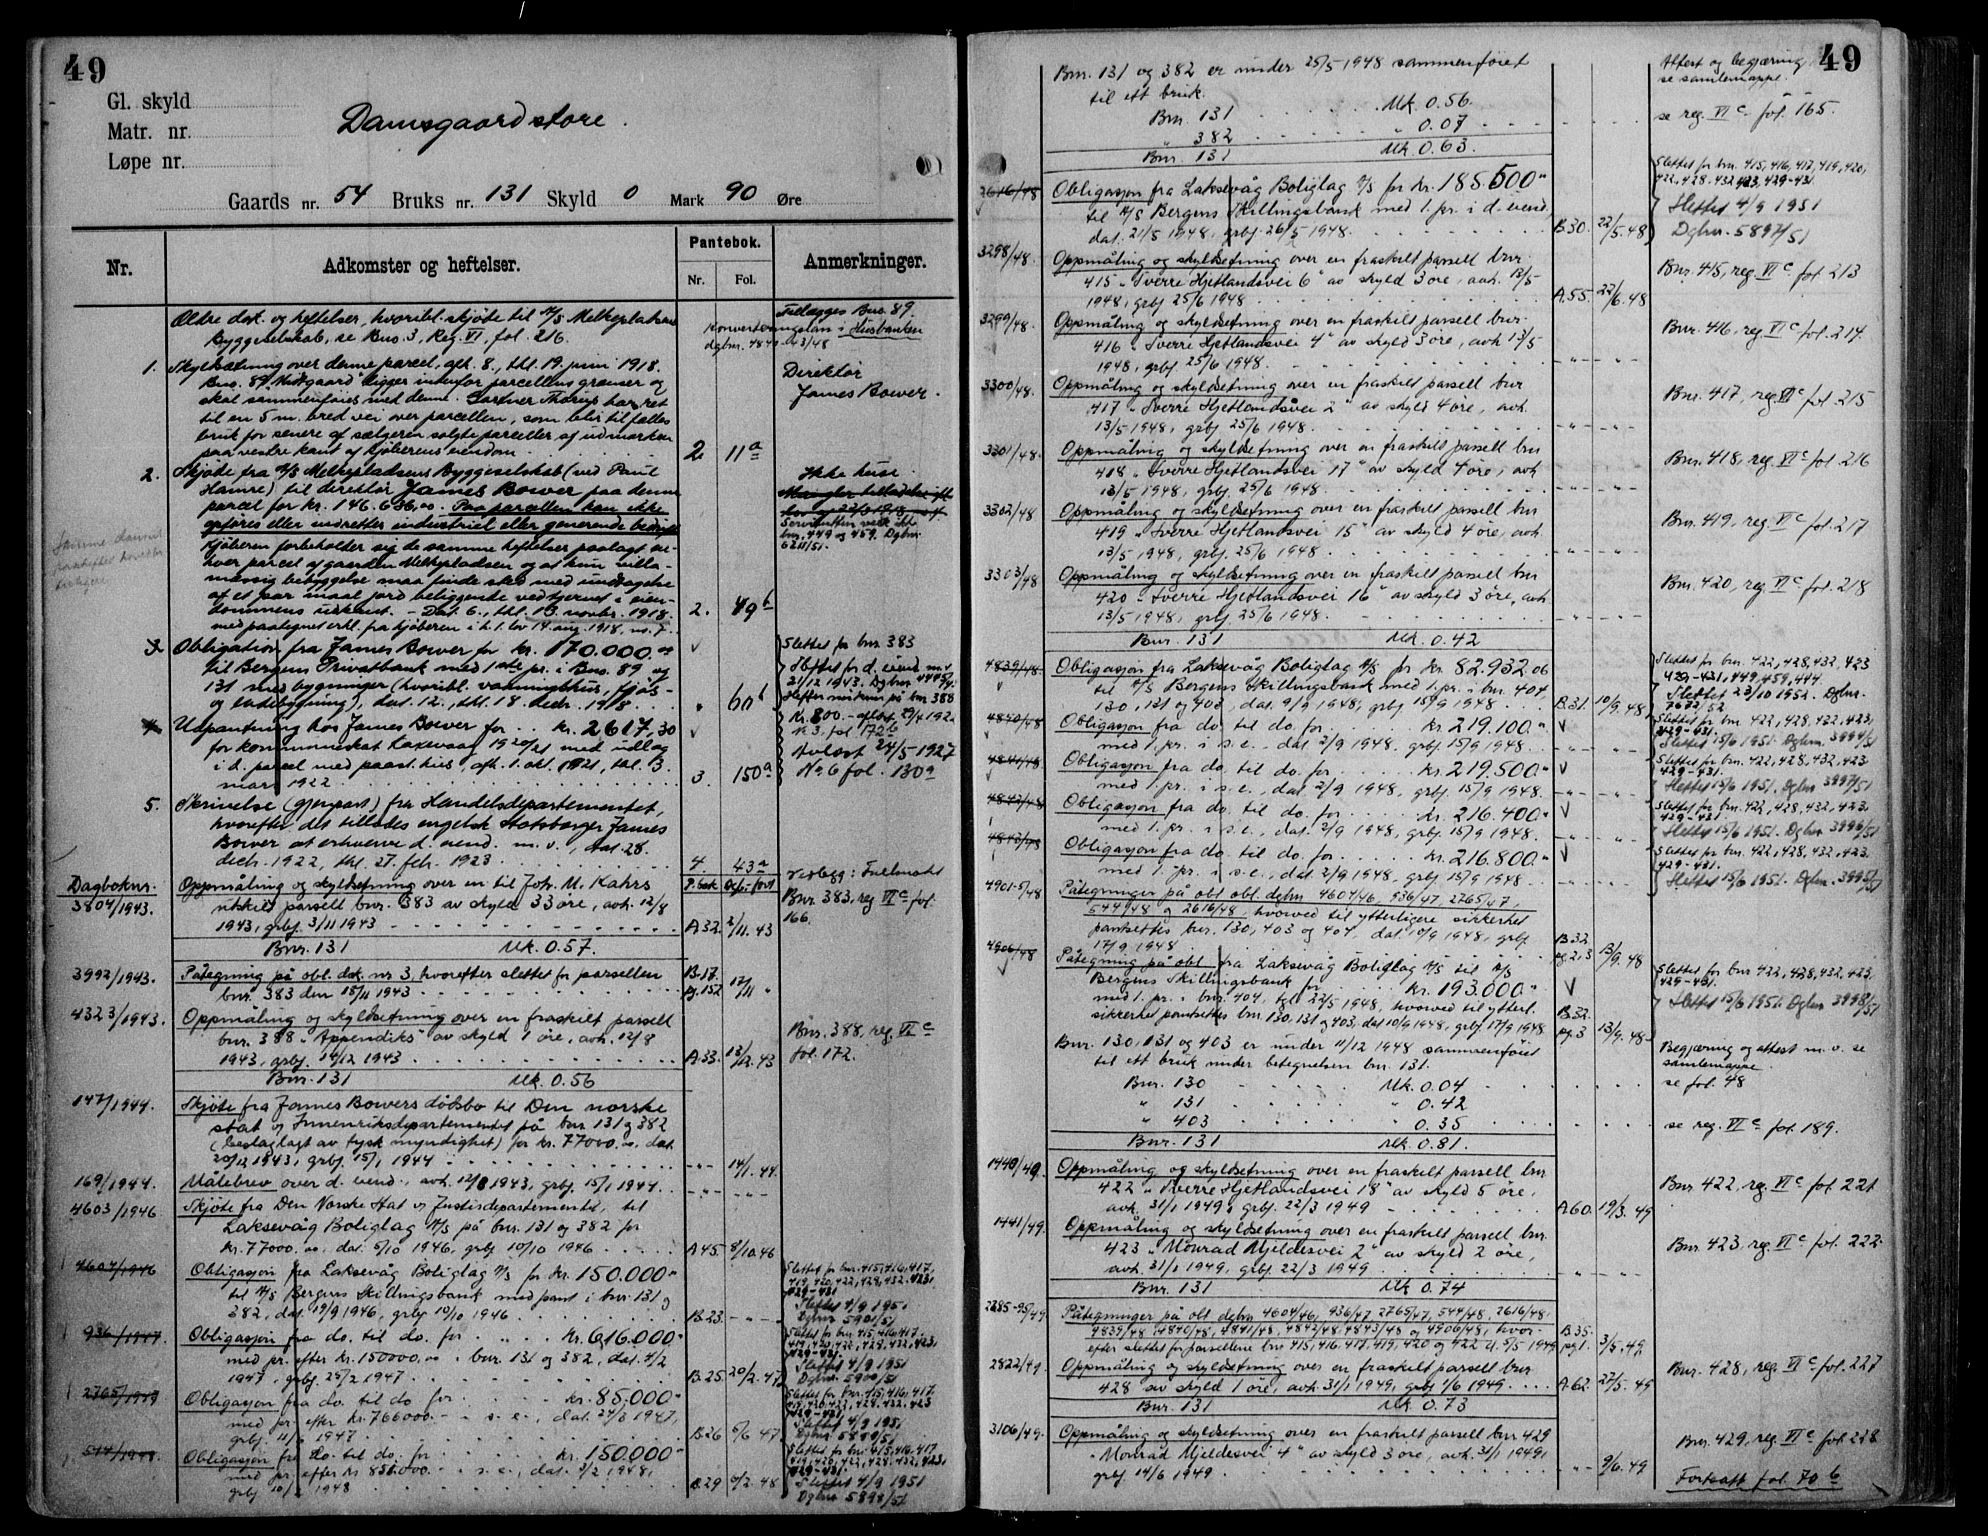 49
Gl. skyld
Matr. nr.
Løpe nr.
Damsgaard store.
Gaards nr. 54 Bruks nr. 131 Skyld 0 Mark 90 Øre
Nr.
Adkomster og heftelser.
Pantebok.
Nr. Fol.
Anmerkninger.
Ældre dok. og heftelser, hvoribl. skjøte til A/S Melkepladsens
Byggeselskab, se Bno. 3, Reg. VI, fol. 216.
Tillægges Bno. 89.
Konverteringslån i Husbanken
1. Skyldsætning over denne parcel, afh. 8., thl. 19. juni 1918.
Bno. 89 ligger indenfor parcellens grænser og
skal sammenføies med denne. Gartner Thorup har ret
til en 5 m. bred vei over parcellen, som blir til fælles
bruk for senere af sælgeren solgte parceller af udmarken
paa vestre kant af kjøberens eiendom. 2 11a
Direktør
James Bower.
2. Skjøte fra A/S Melkepladsens Byggeselskab (ved Paul
Hamre) til direktør James Bower paa denne
parcel for kr. 146.636,00. Paa parcellen kan ikke
opføres eller indrettes industriel eller generende bedrift
Kjøberen forbeholder sig de samme heftelser paalagt en-
hver parcel af gaarden Melkepladsen og at kun villa-
mæssig bebyggelse maa finde sted med undtagelse
af et par maal jord beliggende ved tjernet i eien-
dommens utkant. - Dat. 6., thl. 13. novbr. 1918. 2. 49b
med paategnet erkl. fra kjøberen i h. t. lov 14. aug. 1918, no. 7.
Ikke huse.
Servitutten vedk. ikke
bnr. 449 og 459. Dgbnr.
6211/51.
3. Obligation fra James Bower for kr. 170.000.00
til Bergens Privatbank med 1ste pr. i Bno. 89 og
131 med bygninger (hvoribl. vaaningshus, fjøs-
og ladebygning), dat. 12., thl. 18. decbr. 1918. " 60b
Slettet for bnr 383
Slettet for d. eiend.
21/12 1943. Dgbnr
Hefter misk. på bnr 388
4. Utpantning hos James Bower for kr. 2617,30
for kommuneskat Laxevaag 1920/21 med utlæg
i d. parcel med paast. hus, afh. 1. okt. 1921, thl. 3.
mars 1922 3. 150a
Avlæst 24/5-1927
No 6 fol. 130a
5. Skrivelse (gjenpart) fra Handelsdepartementet,
hvorefter det tillades engelsk statsborger James
Bower at erhverve d. eiend. m. v., dat. 28.
decbr. 1922, thl. 27. febr. 1923 4. 43a
Dagboknr.
P. bok Dgb. ført
3804/1943. Oppmåling og skyldsetning over en til Joh. M. Kahrs
utskilt parsell bnr. 383 av skyld 33 øre, avh. 12/8
1943, grbg. 3/11 1943 A32. 2/11. 43
Bnr 383, reg VI c fol.
166.
Bnr. 131 Mk. 0.57.
3992/1943. Påtegning på obl. dok. nr 3, hvorefter slettet for parsellen
bnr. 383 den 18/11 1943 B.17. pg. 152 17/11 "
4323/1943. Oppmåling og skyldsetning over en fraskilt parsell
bnr. 388 "Appendiks" av skyld 1 øre, avh. 12/8
1943, grbg. 14/12 1943 A33. 13/12. 43
Bnr. 388, reg. VI c
fol. 172.
Bnr. 131 Mk. 0.56
147/1944. Skjøte fra James Bowers dødsbo til Den norske
stat v/ Innenriksdepartementet på bnr 131 og 382
(beslaglagt av tysk myndighet) for kr. 77000.00. dat.
20/12 1943, grbg. 15/1 1944 14/1. 44.
169/1944. Målebrev over d. eiend., avh. 12/8 1943, grbg. 15/1 1944.
4603/1946 Skjøte fra Den Norske Stat v/ Justisdepartementet, til
Laksevåg Boliglag A/S på bnr. 131 og 382 for
kr. 77000.00, dat. 5/10 1946, grbg 10/10 1946 A45. 8/10. 46
4604/1946 Obligasjon fra Laksevåg Boliglag A/S for kr. 150.000"
til A/S Bergens Skillingsbank med pant i bnr. 131 og
382, dat. 19/9 1946, grbg 10/10 1946 B23.
Slettet for bnr. 415, 416, 417,
419, 420, 422, 428, 432, 423,
429-431
Slettet 4/9 1951
Dgbnr 5901/51
936/1947 Obligasjon fra do. til do. for kr. 616.000"
med pr. efter kr. 150000.00 i bnr. 131 og 382, dat. 4/2
1947, grbg. 25/2 1947 B.25 20/2. 47
Slettet for bnr 415, 416, 417,
419, 420, 422, 428, 432, 423,
429-431.
Slettet 4/9 1951
Dgbnr 5900/51
2765/1947 Obligasjon fra do. til do. for kr. 85.000"
med pr. efter kr. 766000.- i s. e., dat. 24/3 1947,
grbg. 11/6 1947 B26 5/6 47
Slettet for bnr. 415, 416, 417,
419, 420, 422, 428, 432, 423
429-431
Slettet 4/9 1951
Dgbnr 5899/51
544/1948 Obligasjon fra do. til do. for kr. 150.000"
med pr. efter kr 851.000.- i s. e., dat. 2/2 1948,
grbg 10/2 1948 B.29 4/2. 48
Slettet for bnr. 415, 416, 417,
419, 420, 422, 428, 432, 423,
429-431
Slettet 4/9 1951
Dgbnr 5898/51
49
Bnr. 131 og 382 er under 25/5 1948 sammenføiet
til ett bruk.
Attest og begjæring
se samlemappe.
Bnr. 131 Mk. 0.56.
" 382 " 0.07
se reg. VI c fol. 165.
Bnr 131 Mk. 0.63.
2616/48 Obligasjon fra Laksevåg Boliglag A/S for kr. 185.500"
til A/S Bergens Skillingsbank med 1. pr. i d. eiend,
dat. 21/5 1948, grbg. 26/5 1948. B.30. 22/5. 48
Slettet for bnr. 415, 416, 417, 419, 420,
422, 428, 432, 423, 429-431
Slettet 4/9 1951
Dgbnr. 5897/51
3298/48. Oppmåling og skyldsetning over en fraskilt parsell bnr.
415 "Sverre Hjetlandsvei 6" av skyld 3 øre, avh. 13/5
1948, grbg 25/6 1948 A.55. 22/6. 48
Bnr. 415, reg. VI c fol. 213
3299/48. Oppmåling og skyldsetning over en fraskilt parsell bnr.
416 "Sverre Hjetlandsvei 4" av skyld 3 øre, avh 13/5
1948, grbg. 25/6 1948.
Bnr. 416, reg VI c fol. 214.
3300/48. Oppmåling og skyldsetning over en fraskilt parsell bnr
417 "Sverre Hjetlandsvei 2" av skyld 4 øre, avh.
13/5 1948, grbg. 25/6 1948.
Bnr. 417, reg VI c fol 215
3301/48. Oppmåling og skyldsetning over en fraskilt parsell bnr
418 "Sverre Hjetlandsvei 17" av skyld 4 øre, avh
13/5 1948, grbg. 25/6 1948.
Bnr. 418, reg VI c fol 216
3302/48 Oppmåling og skyldsetning over en fraskilt parsell bnr
419 "Sverre Hjetlandsvei 15" av skyld 4 øre, avh.
13/5 1948, grbg. 25/6 1948
Bnr. 419, reg VI c fol. 217
3303/48 Oppmåling og skyldsetning over en fraskilt parsell bnr
420 "Sverre Hjetlandsvei 16" av skyld 3 øre, avh
13/5 1948, grbg. 25/6 1948.
Bnr. 420, reg VI c fol. 218
Bnr. 131 Mk. 0.42
4839/48. Obligasjon fra Laksevåg Boliglag A/S for kr 82.932.06
til A/S Bergens Skillingsbank med 1. pr. i bnr. 404,
130, 131 og 403, dat. 9/9 1948, grbg 15/9 1948 B31. 10/9. 48
Slettet for bnr. 422, 428, 432, 423
429-431, 449, 459, 444.
Slettet 23/10 1952. Dgbnr.
7672/52
4840/48 Obligasjon fra do. til do. for kr. 219.100"
med 1. pr. i s. e., dat. 2/9 1948. grbg. 15/9 1948.
Slettet for bnr. 422, 428, 432, 423,
429-431.
Slettet 15/6 1951. Dgbnr 3994/51
4841/48 Obligasjon fra do. til do. for kr. 219.500"
med 1. pr. i s. e., dat. 2/9 1948, grbg. 15/9 1948.
Slettet for bnr. 422, 428, 432, 423
429-431.
Slettet 15/6 1951. Dgbnr 3997/51
4842/48 Obligasjon fra do. til do. for kr. 216.400"
med 1. pr. i s. e., dat. 2/9 1948, grbg. 15/9 1948.
Slettet for bnr. 422, 428, 432, 423,
429-431.
Slettet 15/6 1951. Dgbnr 3996/51
4843/48 Obligasjon fra do. til do. for kr. 216.800"
med 1. pr. i s. e., dat. 2/9 1948, grbg 15/9 1948
Slettet for bnr. 422, 428, 432, 423.
429-431.
Slettet 15/6 1951. Dgbnr. 3995/51
4901-5/48 Påtegninger på obl. dgbnr 4604/46, 936/47, 2765/47,
544/48 og 2616/48, hvorved til ytterligere sikkerhet
pantsettes bnr. 130, 403 og 404, dat 10/9 1948, grbg
17/9 1948 B32. pg 2, 3 13/9. 48
4906/48 Påtegning på obl fra Laksevåg Boliglag A/S til A/S
Bergens Skillingsbank for kr. 193.000"
med 1. pr. i bnr. 404, tgl 22/5 1948, hvorved til ytterl.
sikkerhet pantsettes bnr. 130, 131 og 403, dat 10/9 1948, grbg 17/9 1948 B32. pg. 3 13/9. 48
Slettet for bnr 422, 428, 432, 423,
429-431.
Slettet 15/6 1951. Dgbnr 3998/51
Bnr. 130, 131 og 403 er under 11/12 1948 sammenføiet
til ett bruk under betegnelsen bnr. 131.
Begjæring og attest m. v. se
samlemappe.
Bnr. 130 Mk. 0.04
se fol. 48
" 131 " 0.42
" 403 " 0.35
se reg. VI c fol. 189.
Bnr. 131 Mk. 0.81.
1440/49. Oppmåling og skyldsetning over en fraskilt parsell bnr
422 "Sverre Hjetlandsvei 18" av skyld 5 øre,
avh. 31/1 1949, grbg. 22/3 1949 A60. 19/3. 49
Bnr 422, reg. VI c fol. 221
1441/49. Oppmåling og skyldsetning over en fraskilt parsell bnr.
423 "Monrad Mjeldesvei 2" av skyld 2 øre,
avh. 31/1 1949, grbg. 22/3 1949
Bnr 423, reg. VI c fol. 222.
Bnr. 131 Mk 0.74
2285-95/49 Påtegninger på obl dgbnr 4604/46, 936/47, 2765/47, 544/48, 2616/48,
4839/48, 4840/48, 4841/48, 4842/48, 4843/48 og 4906/48, hvor-
efter slettet for parsellene bnr 415, 416, 417, 419, 420 og 422 d. 5/5 1949 B35. pg 1. 3/5. 49.
2822/49. Oppmåling og skyldsetning over en fraskilt parsell bnr
428 av skyld 1 øre, avh 31/1 1949, grbg 1/6 1949 A62. 27/5. 49
Bnr. 428, reg. VI c fol. 227
Bnr. 131 Mk 0.73
3106/49. Oppmåling og skyldsetning over en fraskilt parsell bnr 429
"Monrad Mjeldesvei 4" av skyld 3 øre, avh. 31/1 1949,
grbg 14/6 1949 9/6. 49
Bnr. 429, reg. VI c fol. 228
Fortsatt fol. 70 b